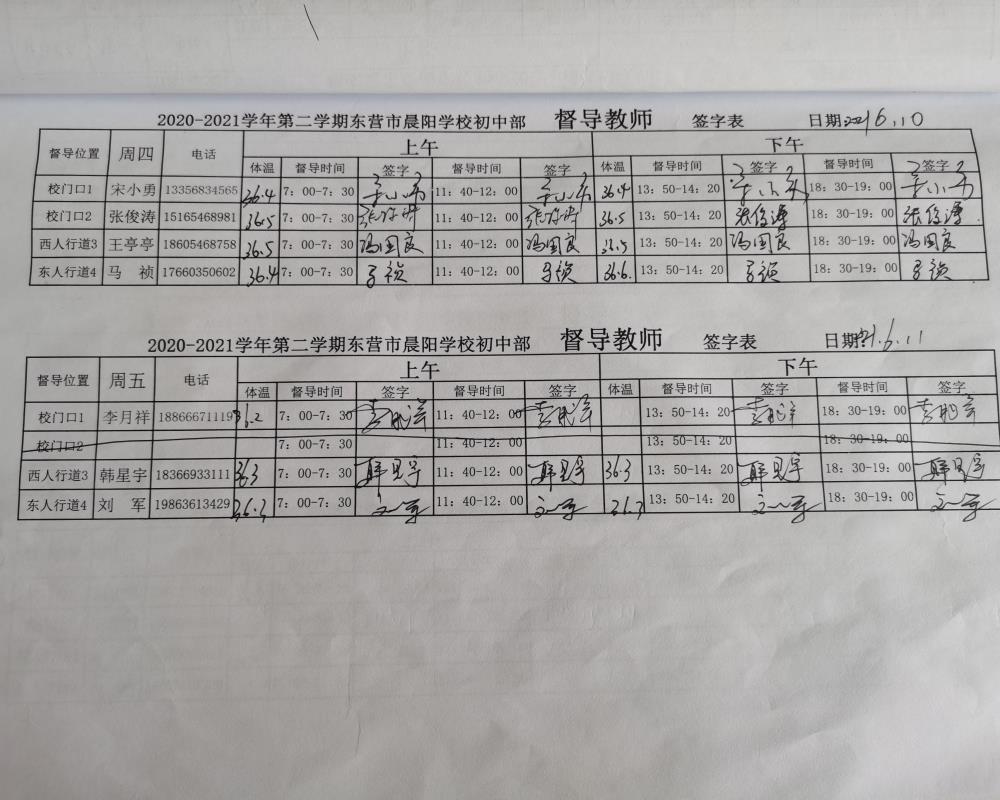 2020-2021学年第二学期东营市晨阳学校初中部 督导教师 签字表 日期2021.6.10
督导位置 周四 电话 上午 下午
体温 督导时间 签字 督导时间 签字 体温 督导时间 签字 督导时间 签字
校门口1 宋小勇 13356834565 36.4 7：00-7：30 宋小勇 11：40-12：00 宋小勇 36.4 13：50-14：20 宋小勇 18：30-19：00 宋小勇
校门口2 张俊涛 15165468981 36.5 7：00-7：30 张俊涛 11：40-12：00 张俊涛 36.5 13：50-14：20 张俊涛 18：30-19：00 张俊涛
西人行道3 王亭亭 18605468758 36.5 7：00-7：30 冯国良 11：40-12：00 冯国良 36.5 13：50-14：20 冯国良 18：30-19：00 冯国良
东人行道4 马 祯 17660350602 36.4 7：00-7：30 马祯 11：40-12：00 马祯 36.6. 13：50-14：20 马祯 18：30-19：00 马祯
2020-2021学年第二学期东营市晨阳学校初中部 督导教师 签字表 日期21.6.11
督导位置 周五 电话 上午 下午
体温 督导时间 签字 督导时间 签字 体温 督导时间 签字 督导时间 签字
校门口1 李月祥 18866671119 36.2 7：00-7：30 李月祥 11：40-12：00 李月祥 13：50-14：20 李月祥 18：30-19：00 李月祥
校门口2 7：00-7：30 11：40-12：00 13：50-14：20 18：30-19：00
西人行道3 韩星宇 18366933111 36.3 7：00-7：30 韩星宇 11：40-12：00 韩星宇 36.3 13：50-14：20 韩星宇 18：30-19：00 韩星宇
东人行道4 刘 军 19863613429 36.3 7：00-7：30 刘军 11：40-12：00 刘军 36.3 13：50-14：20 刘军 18：30-19：00 刘军